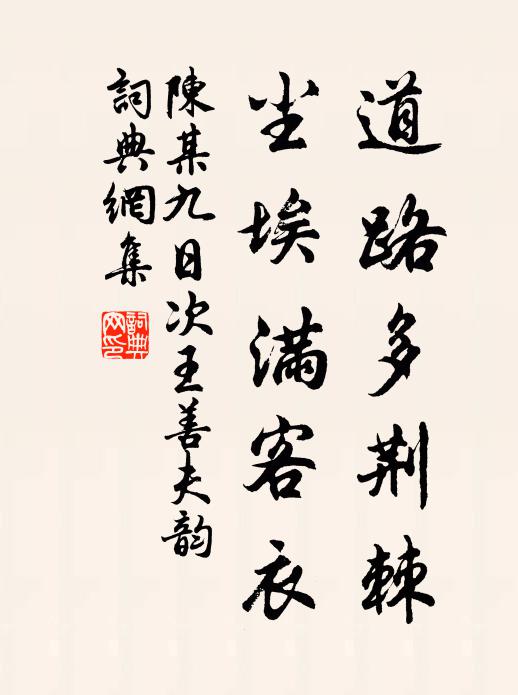 道路多荆棘
尘埃满客衣
陳某九日次王善夫韵
詞典網集
詞典网印